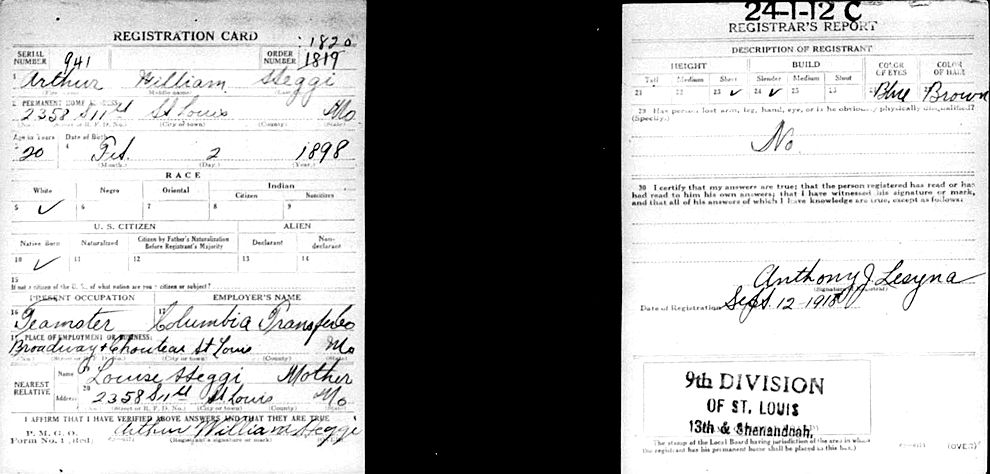 REGISTRATION CARD
SERIAL NUMBER 941 ORDER NUMBER 1820 1819
1 Arthur William Heggi
(First name) (Middle name) (Last name)
2 PERMANENT HOME ADDRESS:
2358 S 11th St Louis Mo
(No.) (Street or R. F. D. No.) (City or town) (County) (State)
Age in Years Date of Birth
3 20 4 Feb. 2 1898
(Month.) (Day.) (Year.)
RACE
White Negro Oriental Indian
Citizen Noncitizen
5 ✓ 6 7 8 9
U. S. CITIZEN ALIEN
Native Born Naturalized Citizen by Father's Naturalization Before Registrant's Majority Declarant Non-declarant
10 ✓ 11 12 13 14
15
If not a citizen of the U. S., of what nation are you a citizen or subject?
PRESENT OCCUPATION EMPLOYER'S NAME
16 Teamster 17 Columbia Transfer Co
18 PLACE OF EMPLOYMENT OR BUSINESS:
Broadway + Chouteau St Louis Mo
(No.) (Street or R. F. D. No.) (City or town) (County) (State)
NEAREST RELATIVE Name 19 Louise Heggi Mother
Address 20 2358 S 11th St Louis Mo
(No.) (Street or R. F. D. No.) (City or town) (County) (State)
I AFFIRM THAT I HAVE VERIFIED ABOVE ANSWERS AND THAT THEY ARE TRUE
P. M. G. O.
Form No. 1 (Red) Arthur William Heggi
(Registrant's signature or mark)
24-1-12 C
REGISTRAR'S REPORT
DESCRIPTION OF REGISTRANT
HEIGHT BUILD COLOR OF EYES COLOR OF HAIR
Tall Medium Short Slender Medium Stout
21 22 23 ✓ 24 ✓ 25 26 27 Blue 28 Brown
29 Has person lost arm, leg, hand, eye, or is he obviously physically disqualified?
(Specify.)
No
30 I certify that my answers are true; that the person registered has read or has
had read to him his own answers; that I have witnessed his signature or mark,
and that all of his answers of which I have knowledge are true, except as follows:
Anthony J. Lesyna
(Signature of Registrar)
Date of Registration Sept. 12-1918
9th DIVISION
OF ST. LOUIS
13th & Shenandoah,
(The stamp of the Local Board having jurisdiction of the area in which
the registrant has his permanent home shall be placed in this box.)
(OVER)